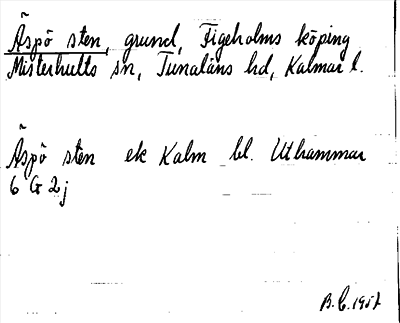 Äspö sten, grund, Figeholms köping
Misterhults sn, Tunaläns hd, Kalmar l.
Äspö sten ek Kalm bl. Uthammar
6 G 2 j
B. C. 1957